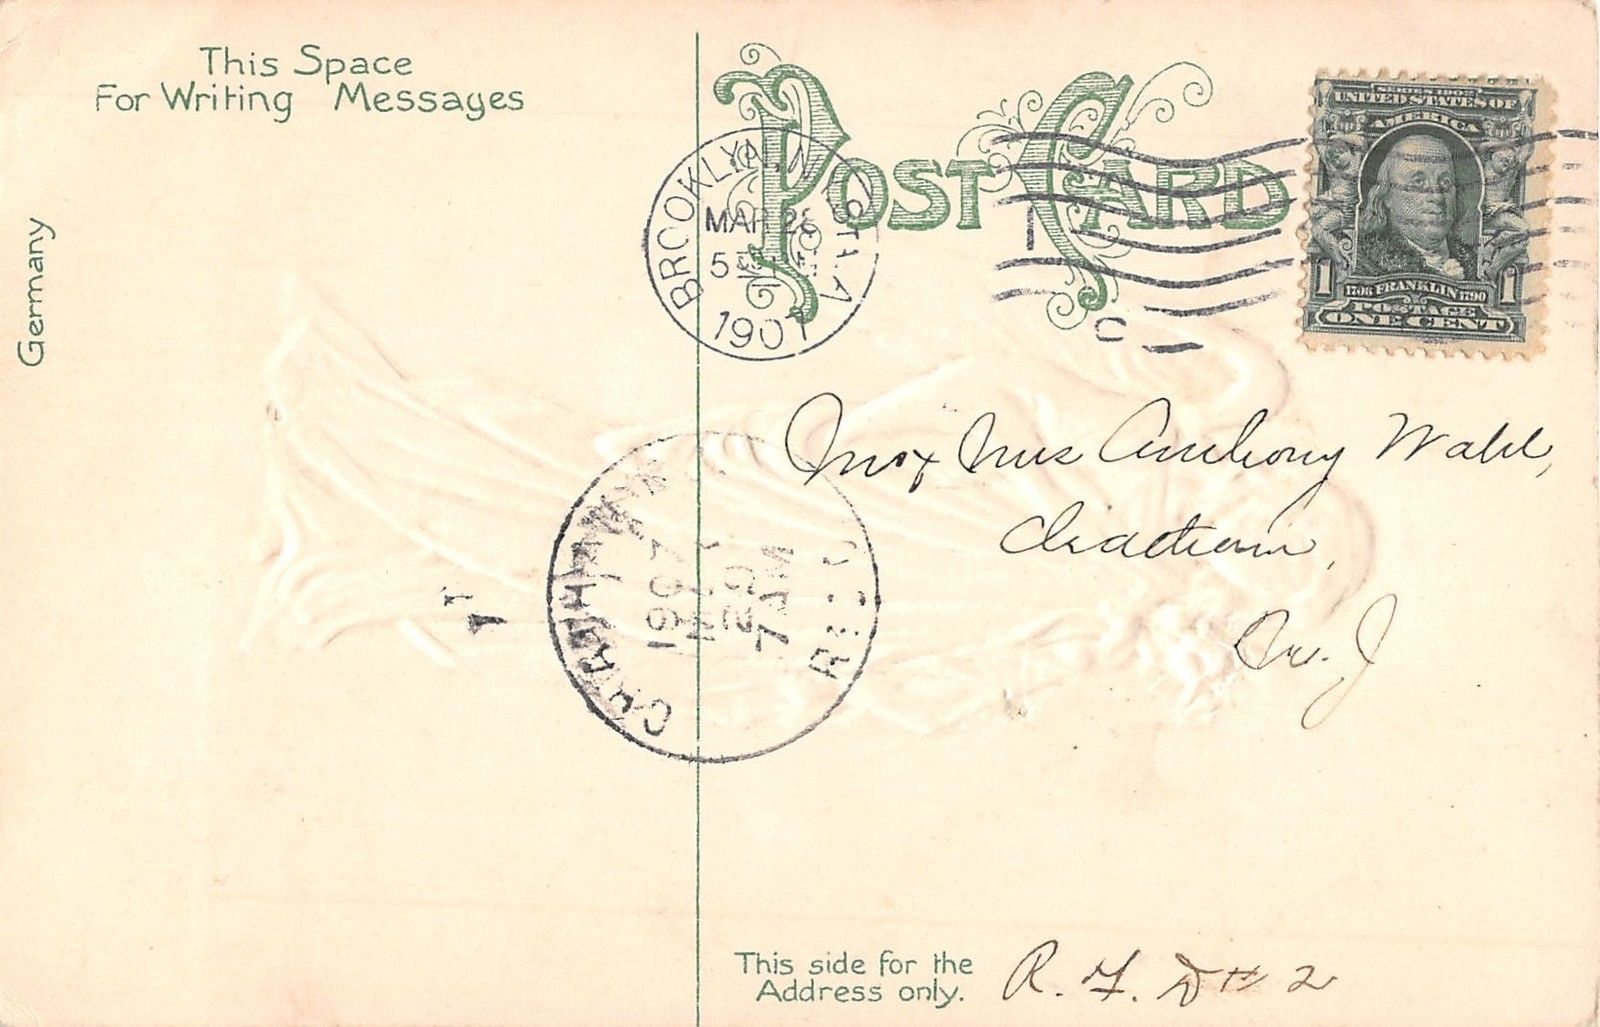 This Space
For Writing Messages
Germany
POST CARD
BROOKLYN, N.Y. STA. A
MAR 28
5
1907
1
C
SERIES 1902
UNITED STATES OF
AMERICA
1706 FRANKLIN 1790
1 1
POSTAGE
ONE CENT
Mr & Mrs Anthony Wahl,
Chatham,
N. J
1907
29
7 AM
REC'D
This side for the
Address only.
R. F. D # 2